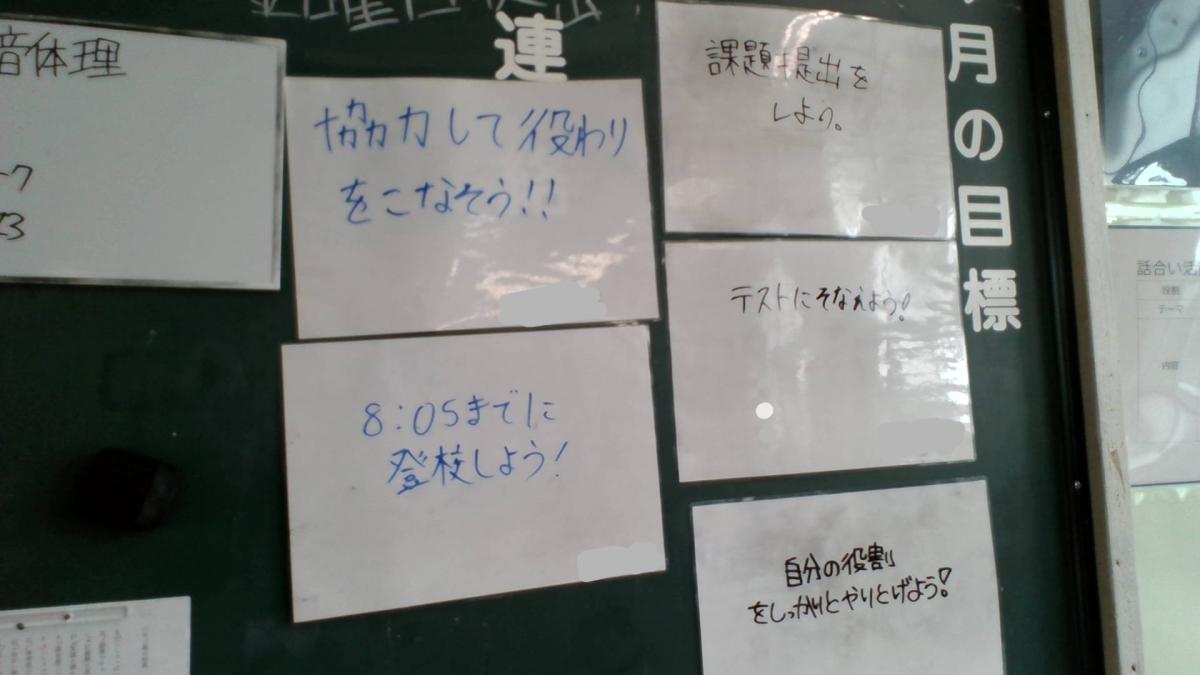 音体理
連
協力して役わり
をこなそう!!
8:05までに
登校しよう!
月の目標
課題提出を
しよう。
テストにそなえよう!
自分の役割
をしっかりとやりとげよう!
話合い活
役割
テーマ
内容